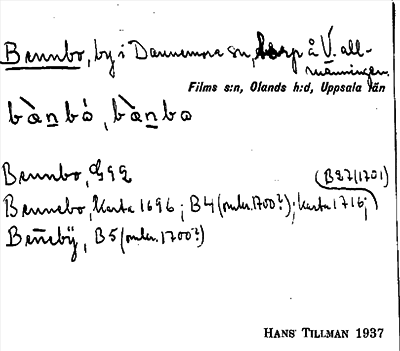 Bennbo, by i Dannemora sn, torp å V. all-
männingen.
Films s:n, Olands h:d, Uppsala län
bæ̀n̲bó, bæ̀n̲bo
Bennbo, G92
(B27(1701)
Bennebo, Karta 1696; B4 (omkr. 1700?); karta 1716;
Beñebÿ, B5 (omkr. 1700?)
HANS TILLMAN 1937